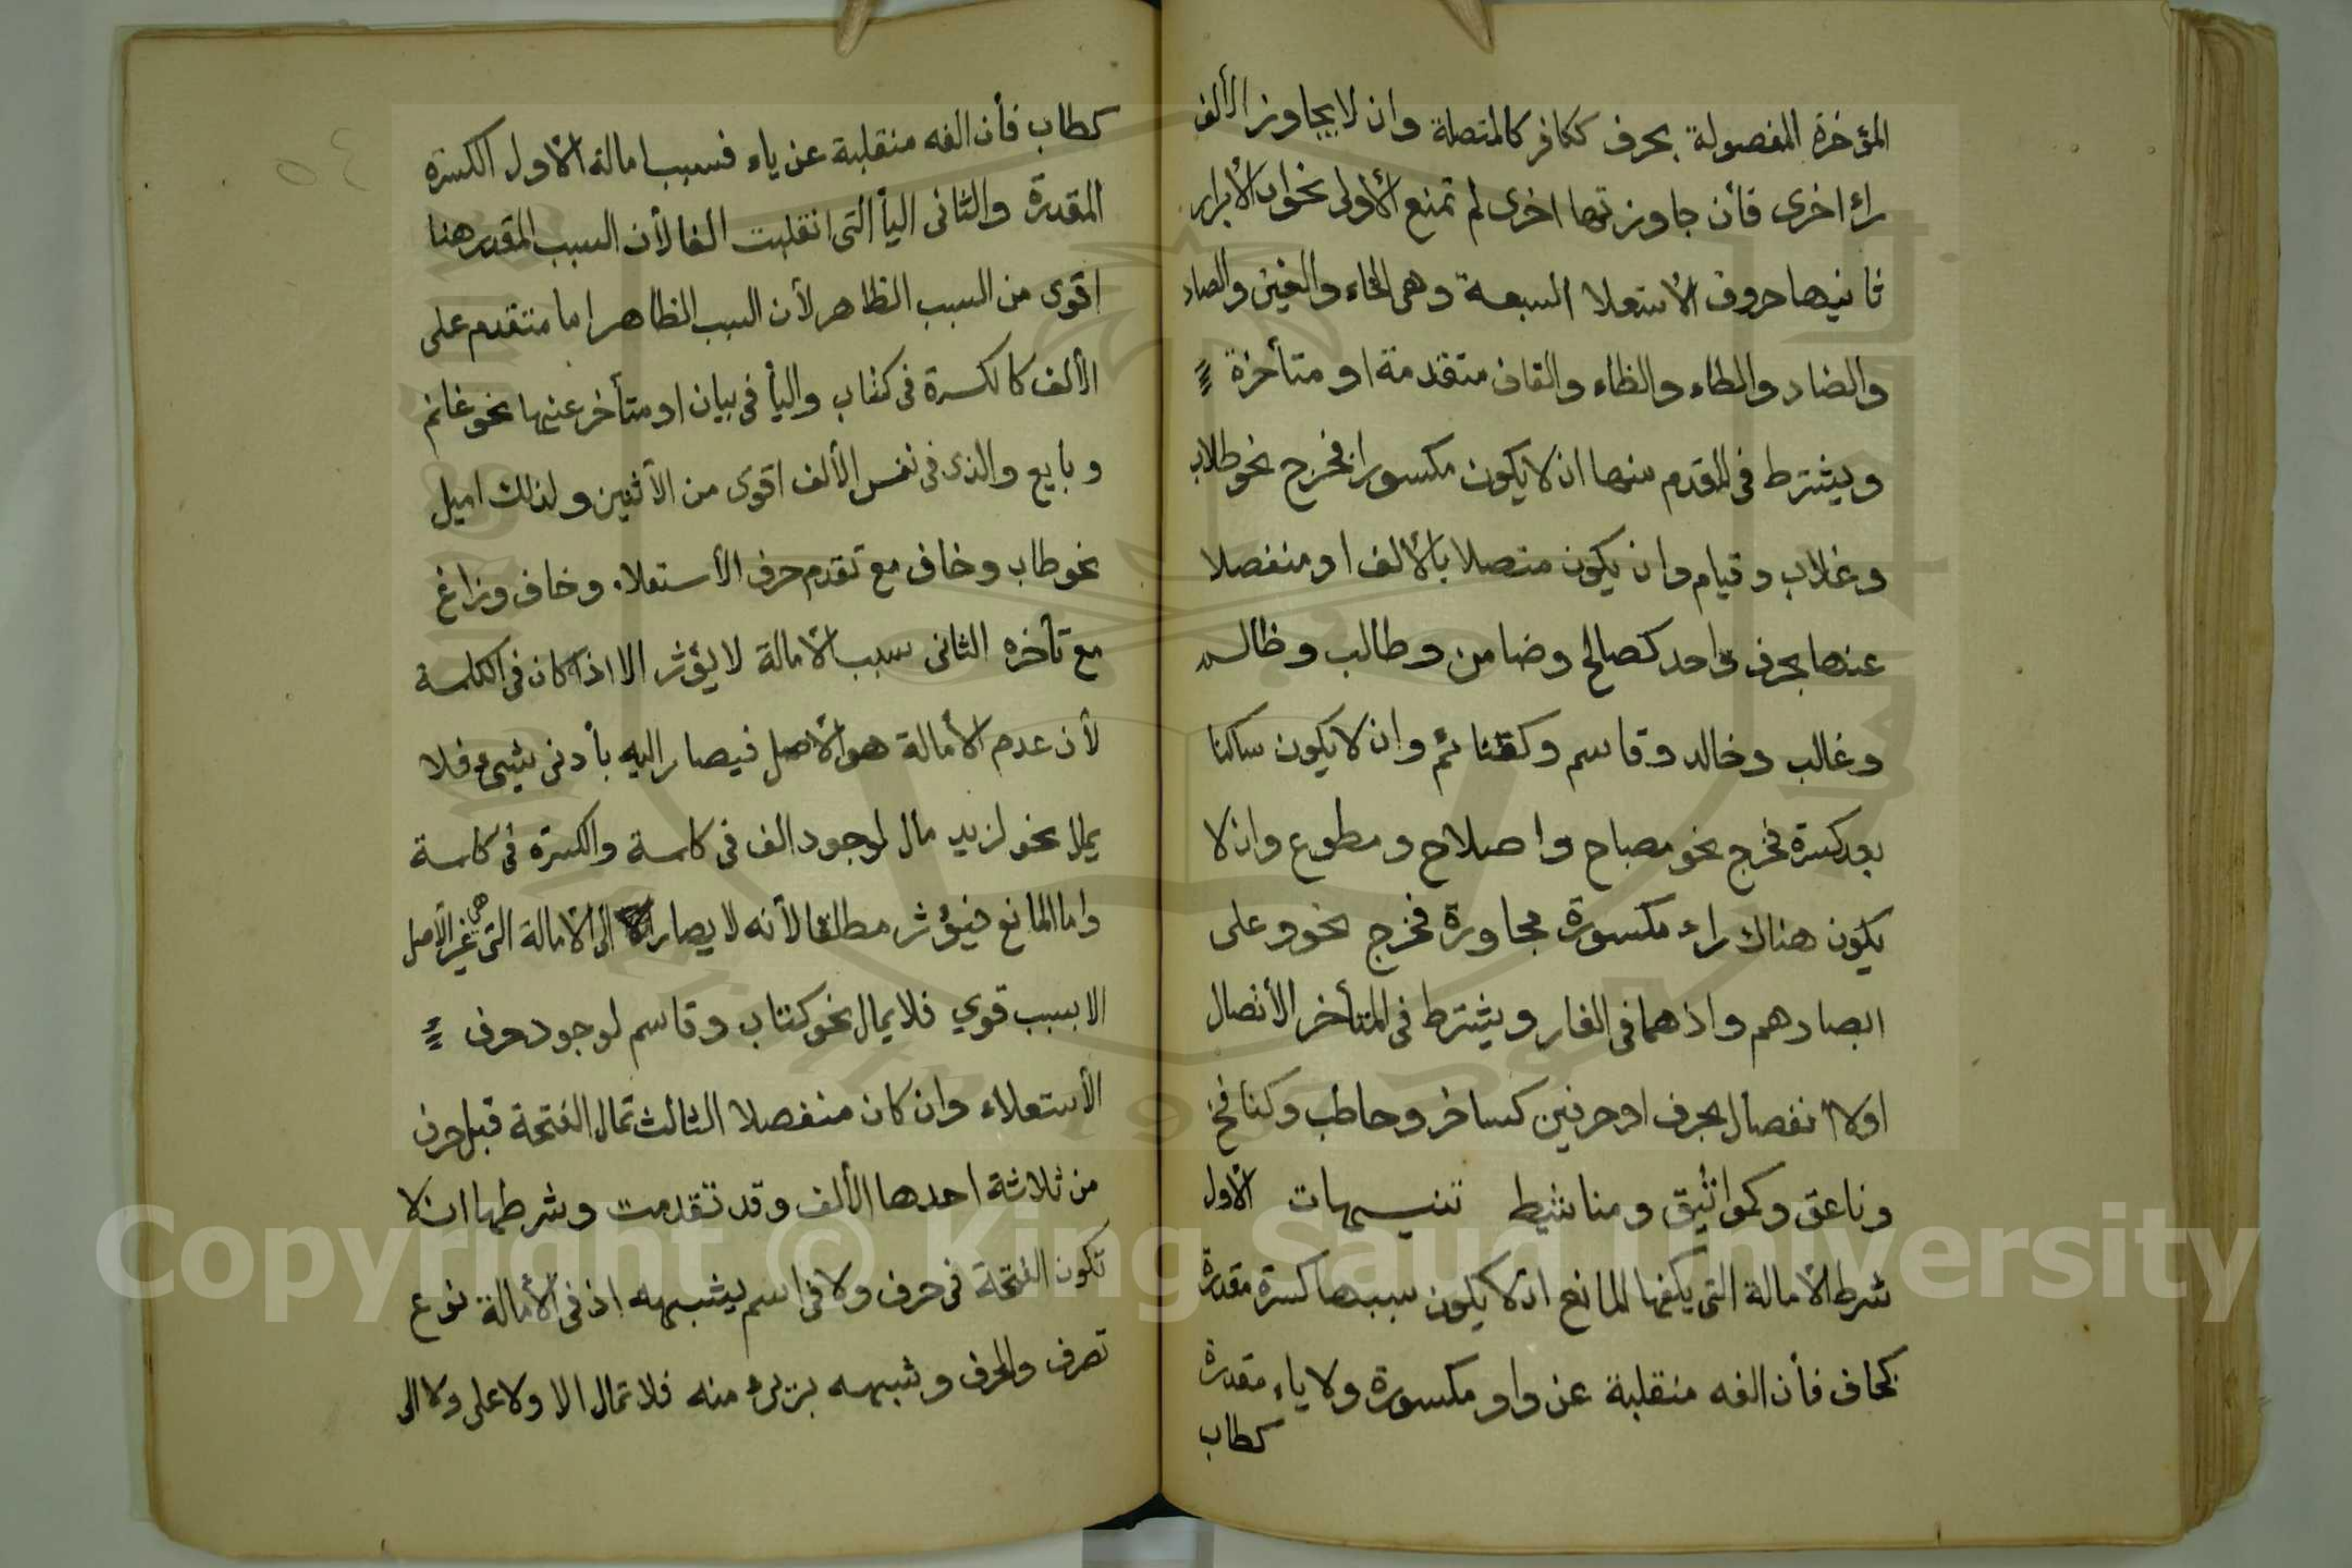 المؤخرة المفصولة بحرف ككافر كالمتصلة وان لا يجاوز الألف
راء اخرى فأن جاوزتها اخرى لم تمنع الأولى نحو ان الأبرار
ثانيها حروف الأستعلا السبعة وهى الخاء والغين والصاد
والضاد والطاء والظاء والقاف متقدمة او متأخرة
ويشترط فى المقدم منها ان لا يكون مكسورا فخرج نحو طلاب
وغلاب وقيام وان يكون متصلا بالألف او منفصلا
عنها بحرف واحد كصالح وضامن وطالب وظالم
وغالب وخالد وقاسم وكقنائم وان لا يكون ساكنا
بعد كسرة فخرج نحو مصباح واصلاح ومطوع وان لا
يكون هناك راء مكسورة مجاورة فخرج نحو وعلى
ابصارهم واذ هما فى الغار ويشترط فى المتأخر الأتصال
اولا انفصال بحرف او حرفين كساخر وحاطب وكنافخ
وناعق وكمواثيق ومناشيط تنبيهات الأول
شرط الأمالة التى يكفها المانع ان لا يكون سببها كسرة مقدرة
كخاف فأن الفه منقلبة عن واو مكسورة ولا ياء مقدرة
كطاب
٥٤
كطاب فأن الفه منقلبة عن ياء فسبب امالة الأول الكسرة
المقدرة والثانى اليأ التى انقلبت الفا لأن السبب المقدر هنا
اقوى من السبب الظاهر لأن السبب الظاهر اما متقدم على
الألف كالكسرة فى كتاب واليأ فى بيان او متأخر عنها نحو غانم
وبايع والذى فى نفس الألف اقوى من الأثنين ولذلك اميل
نحو طاب وخاف مع تقدم حرف الأستعلاء وخاف وزاغ
مع تأخره الثانى سبب الأمالة لا يؤثر الا اذا كان فى الكلمة
لأن عدم الأمالة هو الأصل فيصار اليه بأدنى شيئ فلا
يمل نحو لزيد مال لوجود الف فى كلمة والكسرة فى كلمة
واما المانع فيؤثر مطلقا لأنه لا يصار الى الأمالة التى هى غير الأصل
الا بسبب قوي فلا يمال نحو كتاب وقاسم لوجود حرف
الأستعلاء وان كان منفصلا الثالث تمال الفتحة قبل حرف
من ثلاثة احدها الألف وقد تقدمت وشرطها ان لا
تكون الفتحة فى حرف ولا فى اسم يشبهه اذ فى الأمالة نوع
تصرف والحرف وشبهه برىء منه فلا تمال الا ولا على ولا الى